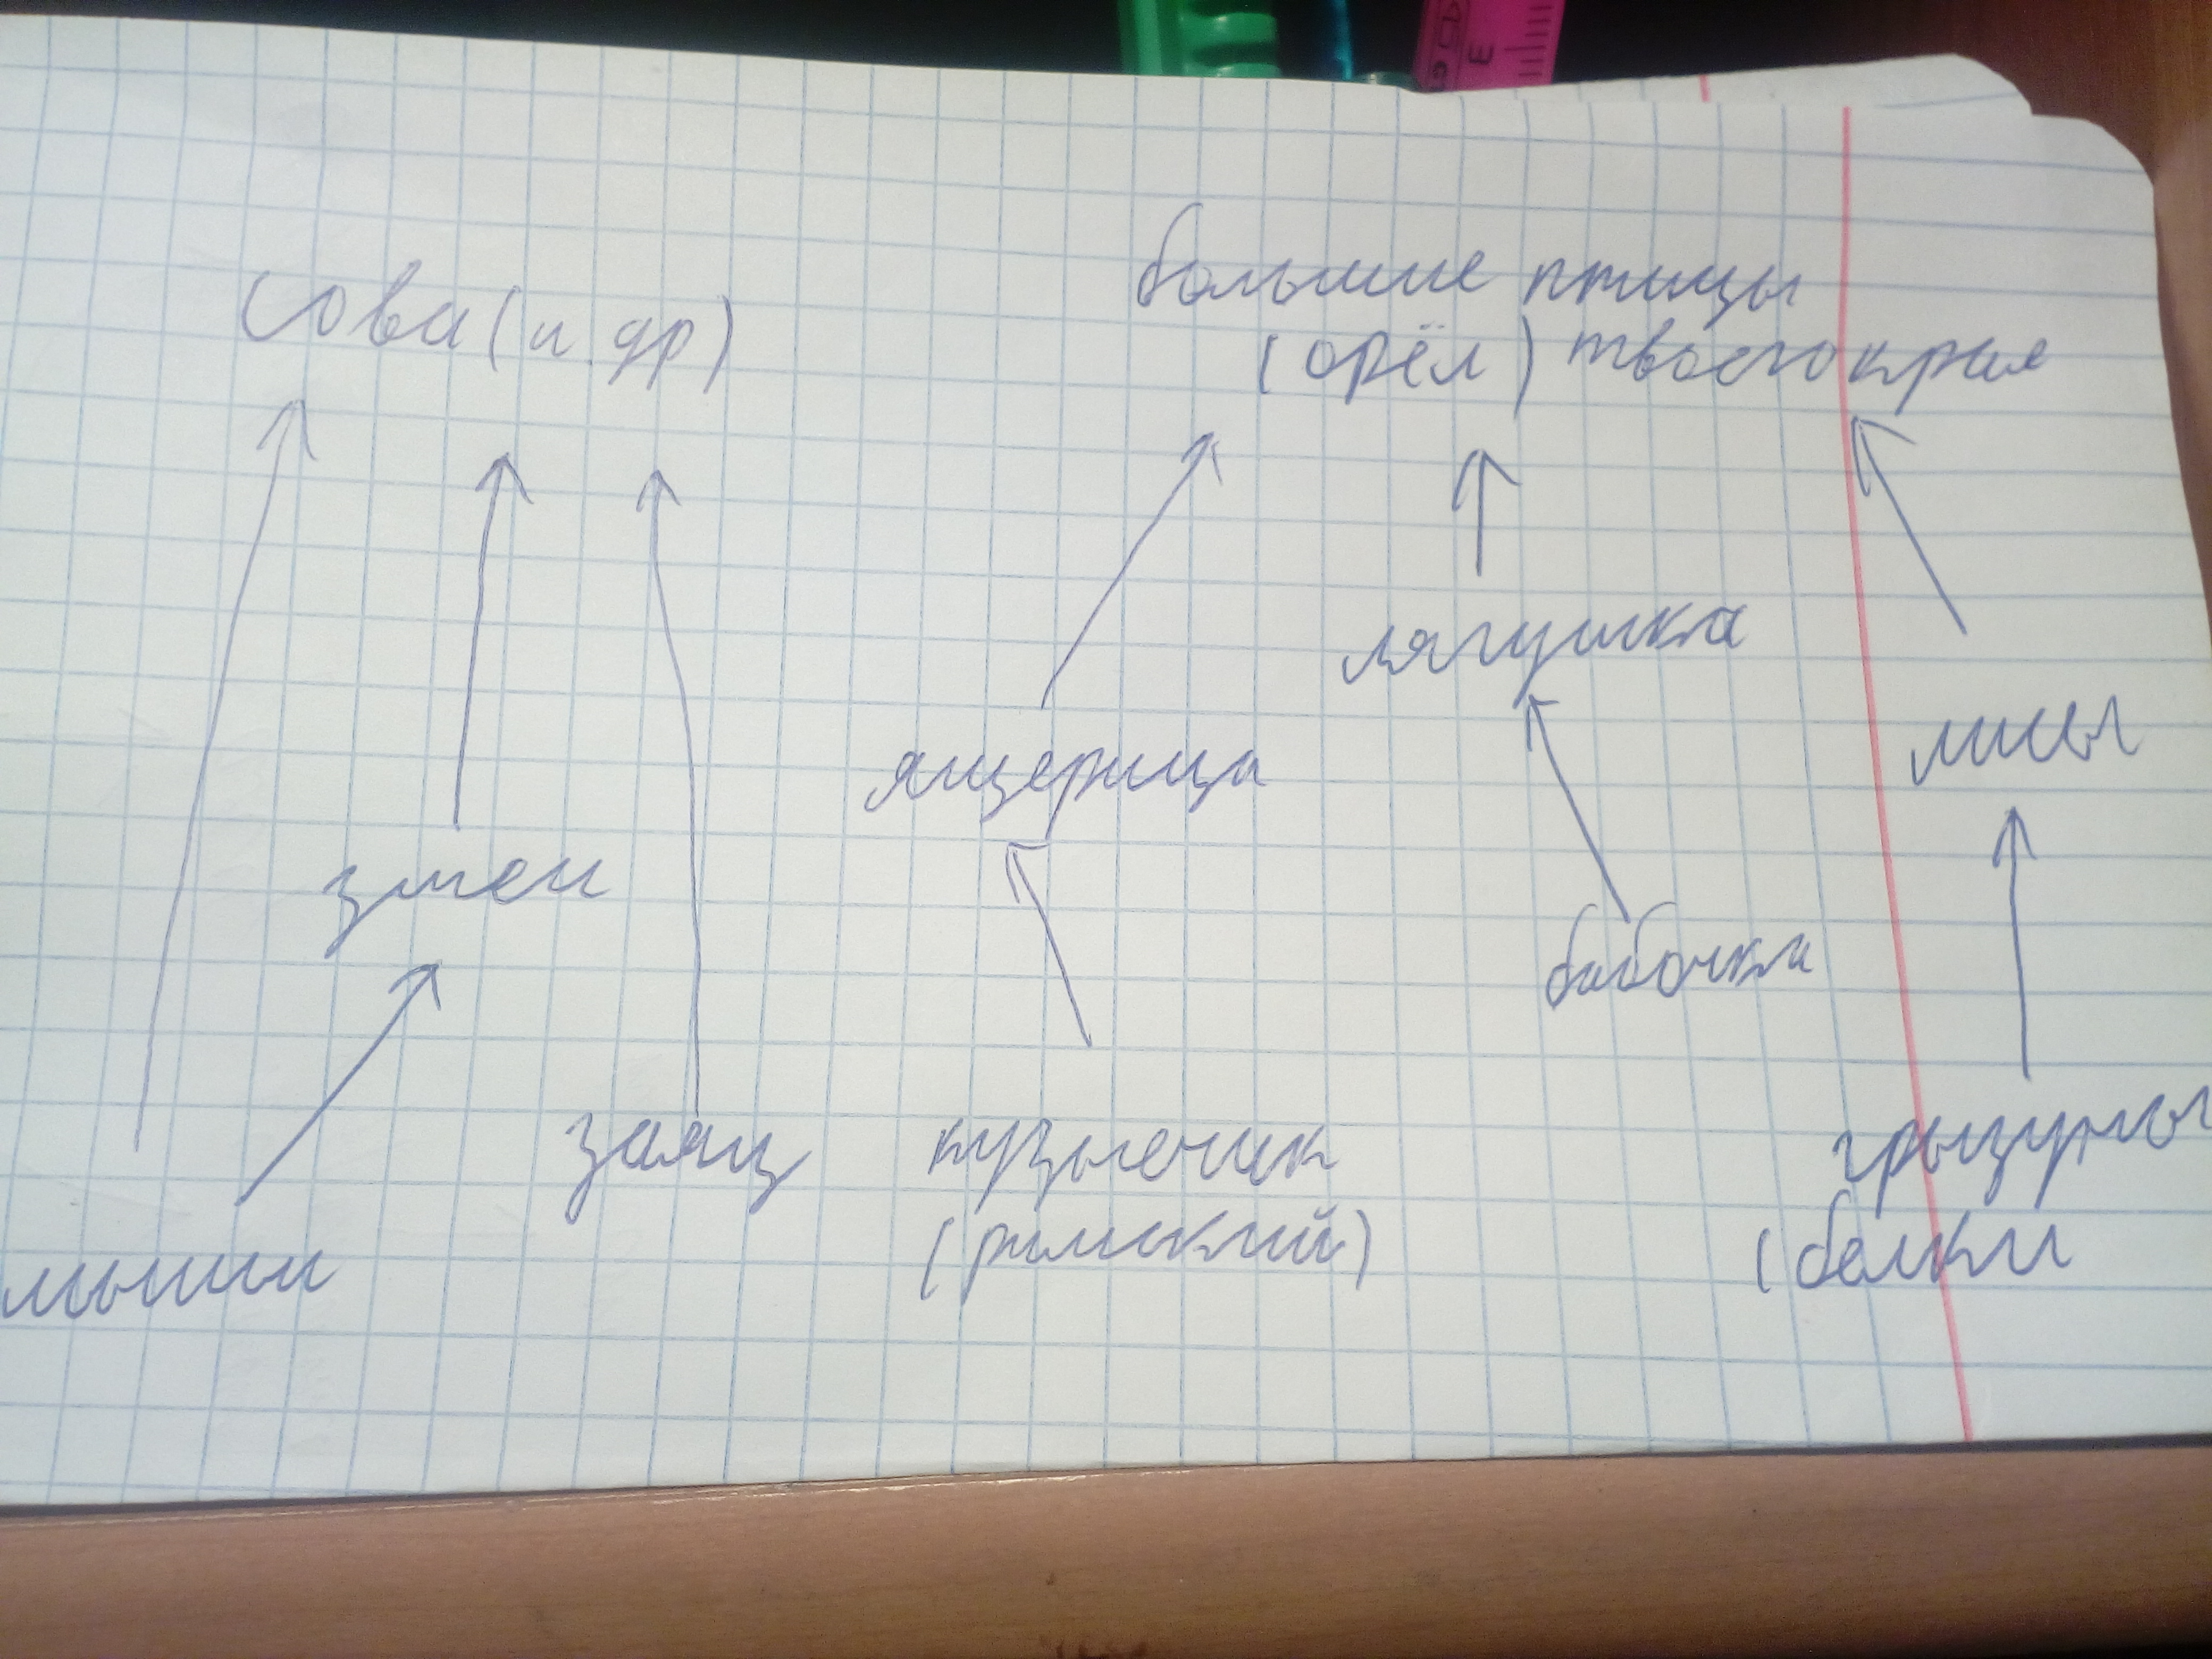 сова (и др)
большие птицы
(орёл) твоего края
лягушка
лисы
ящерица
змеи
бабочка
заяц
кузнечик
(римский)
грызуны
(белки
мыши